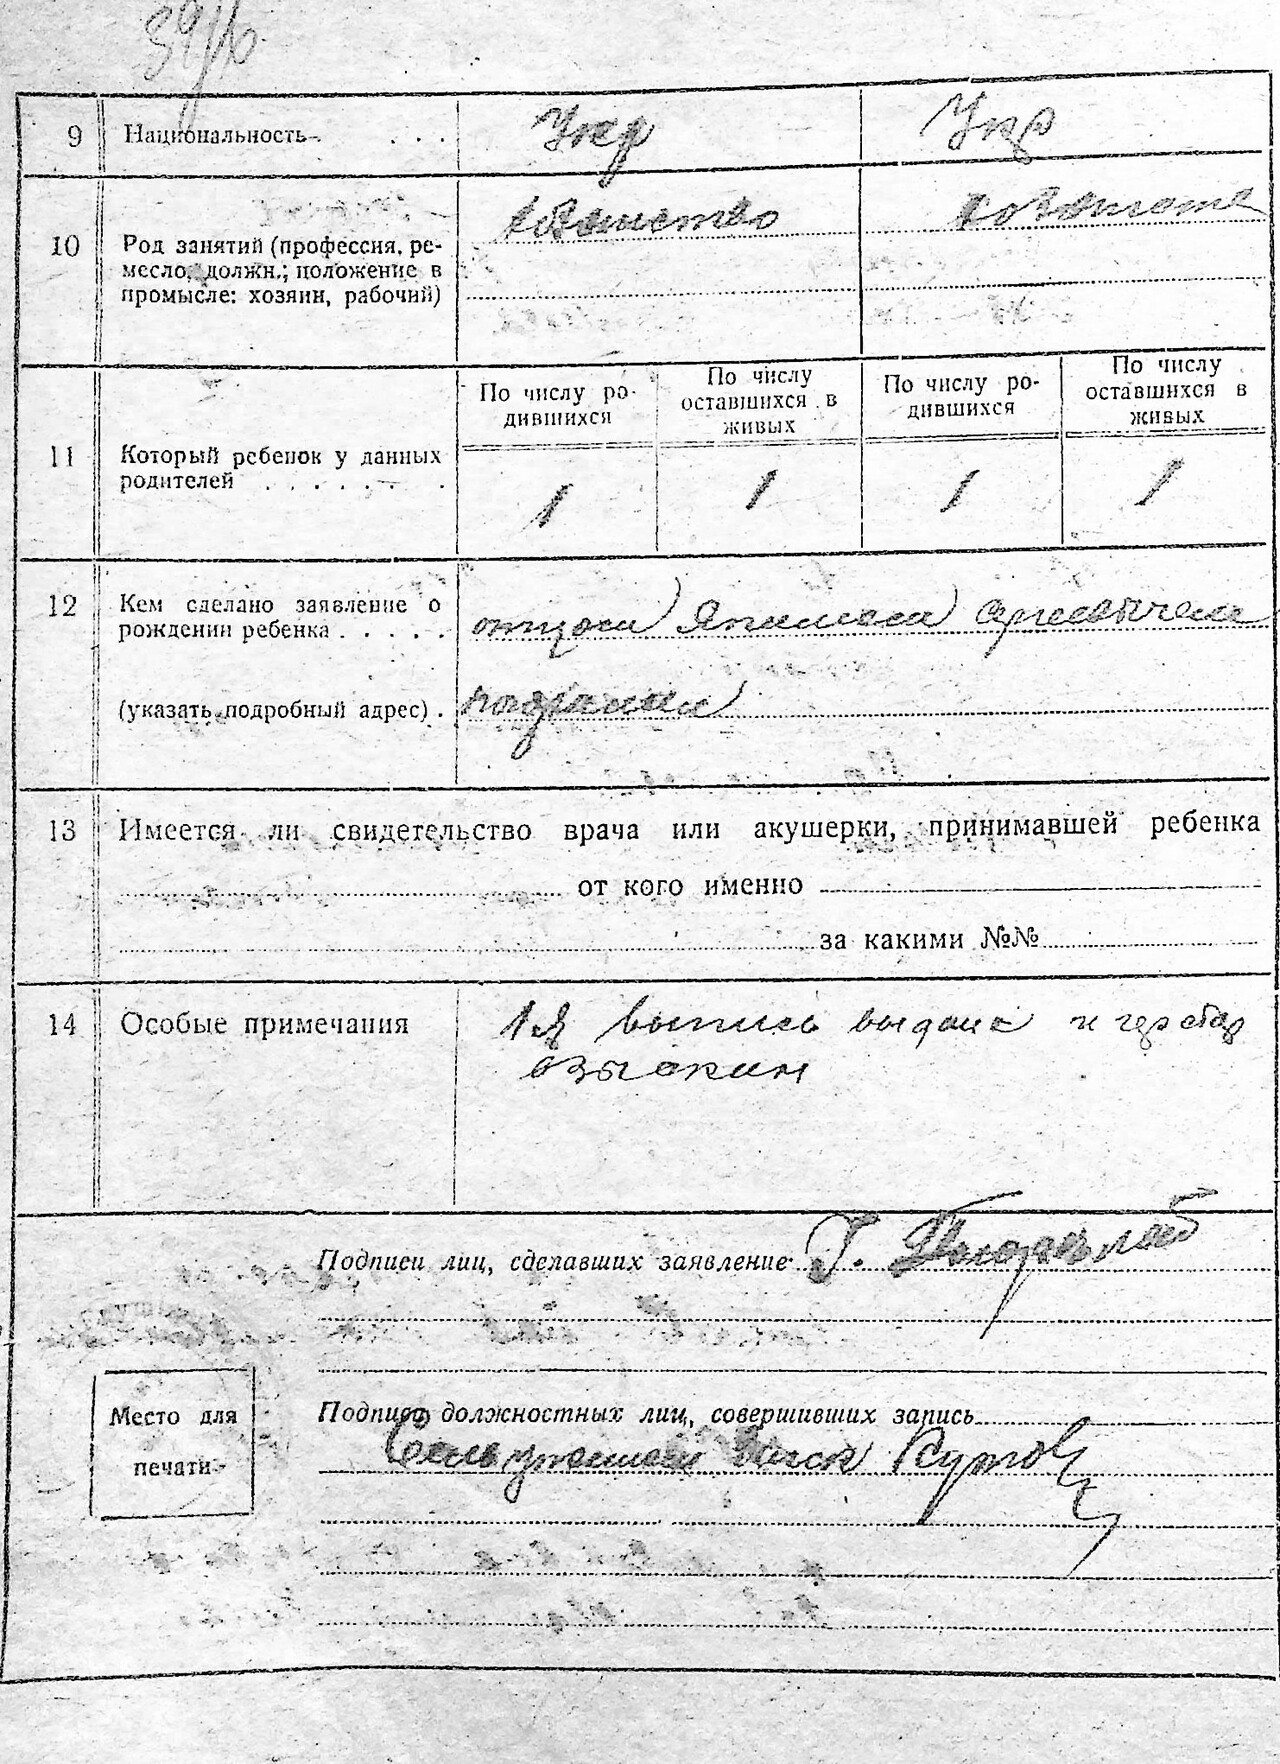 9 Национальность . . . Укр Укр
10 Род занятий (профессия, ре-
месло, должн.; положение в
промысле: хозяин, рабочий)
11 Который ребенок у данных
родителей . . . . . . .
По числу ро-
дившихся
По числу
оставшихся в
живых
По числу ро-
дившихся
По числу
оставшихся в
живых
1 1 1 1
12 Кем сделано заявление о
рождении ребенка . . . . .
отцом Сергеевичем
(указать подробный адрес) .
13 Имеется ли свидетельство врача или акушерки, принимавшей ребенка
от кого именно
за какими №№
14 Особые примечания
1я выпись выдана и гер сбор
взыскан
Подписи лиц, сделавших заявление Г.
Место для
печати
Подписи должностных лиц, совершивших запись